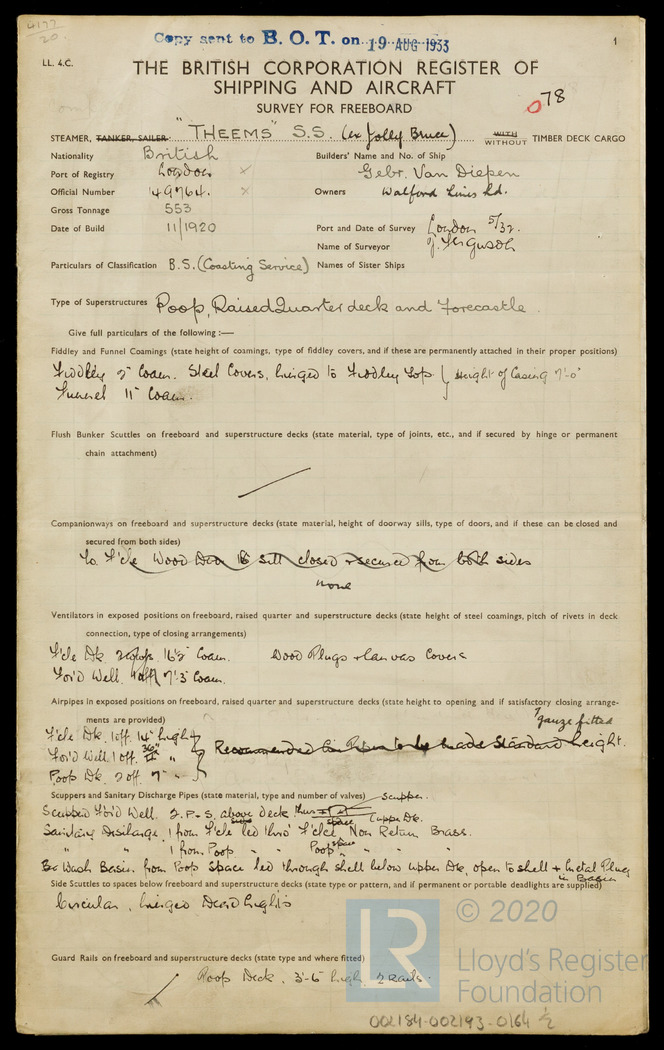 4177
20.
Copy sent to B. O. T. on 19 AUG 1933
1
LL. 4.C.
THE BRITISH CORPORATION REGISTER OF
SHIPPING AND AIRCRAFT
SURVEY FOR FREEBOARD
078
STEAMER, TANKER, SAILER: "THEEMS" S.S. (ex Jolly Bruce) WITH WITHOUT TIMBER DECK CARGO
Nationality British Builders' Name and No. of Ship
Port of Registry London × Gebr. Van Diepen
Official Number 149764. × Owners Walford Lines Ld.
Gross Tonnage 553
Date of Build 11/1920 Port and Date of Survey London 5/32.
Name of Surveyor J. Ferguson
Particulars of Classification B.S. (Coasting Service) Names of Sister Ships
Type of Superstructures Poop, Raised Quarter deck and Forecastle.
Give full particulars of the following :—
Fiddley and Funnel Coamings (state height of coamings, type of fiddley covers, and if these are permanently attached in their proper positions)
Fiddley 9" Coam. Steel Covers, hinged to Fiddley top. Height of Casing 7'-0"
Funnel 11" Coam.
Flush Bunker Scuttles on freeboard and superstructure decks (state material, type of joints, etc., and if secured by hinge or permanent
chain attachment)
Companionways on freeboard and superstructure decks (state material, height of doorway sills, type of doors, and if these can be closed and
secured from both sides)
To F'cle Wood Door sill closed & secured from both sides
none
Ventilators in exposed positions on freeboard, raised quarter and superstructure decks (state height of steel coamings, pitch of rivets in deck
connection, type of closing arrangements)
F'cle Dk. Coam. Wood Plugs & Canvas Covers
For'd Well. 7'3" Coam.
Airpipes in exposed positions on freeboard, raised quarter and superstructure decks (state height to opening, and if satisfactory closing arrange-
ments are provided) gauze fitted
F'cle Dk. 1 off. 14" high
For'd Well. 1 off. 36" " Recommended to be made Standard height.
Poop Dk. 2 off. 7" "
Scuppers and Sanitary Discharge Pipes (state material, type and number of valves) scupper.
Scupper For'd Well. 2. P. & S. above deck thus upper Dk.
Sanitary Discharge 1 from F'cle led thro' F'cle space Non Return Brass.
" " 1 from Poop " " Poop space " " "
Wash Basin from Poop space led through shell below upper Dk, open to shell & metal Plug
in Basin
Side Scuttles to spaces below freeboard and superstructure decks (state type or pattern, and if permanent or portable deadlights are supplied)
Circular, hinged Deadlights
Guard Rails on freeboard and superstructure decks (state type and where fitted)
Poop Deck. 3'-6" high 2 rails.
LR
© 2020
Lloyd's Register
Foundation
002184-002193-0164 ½